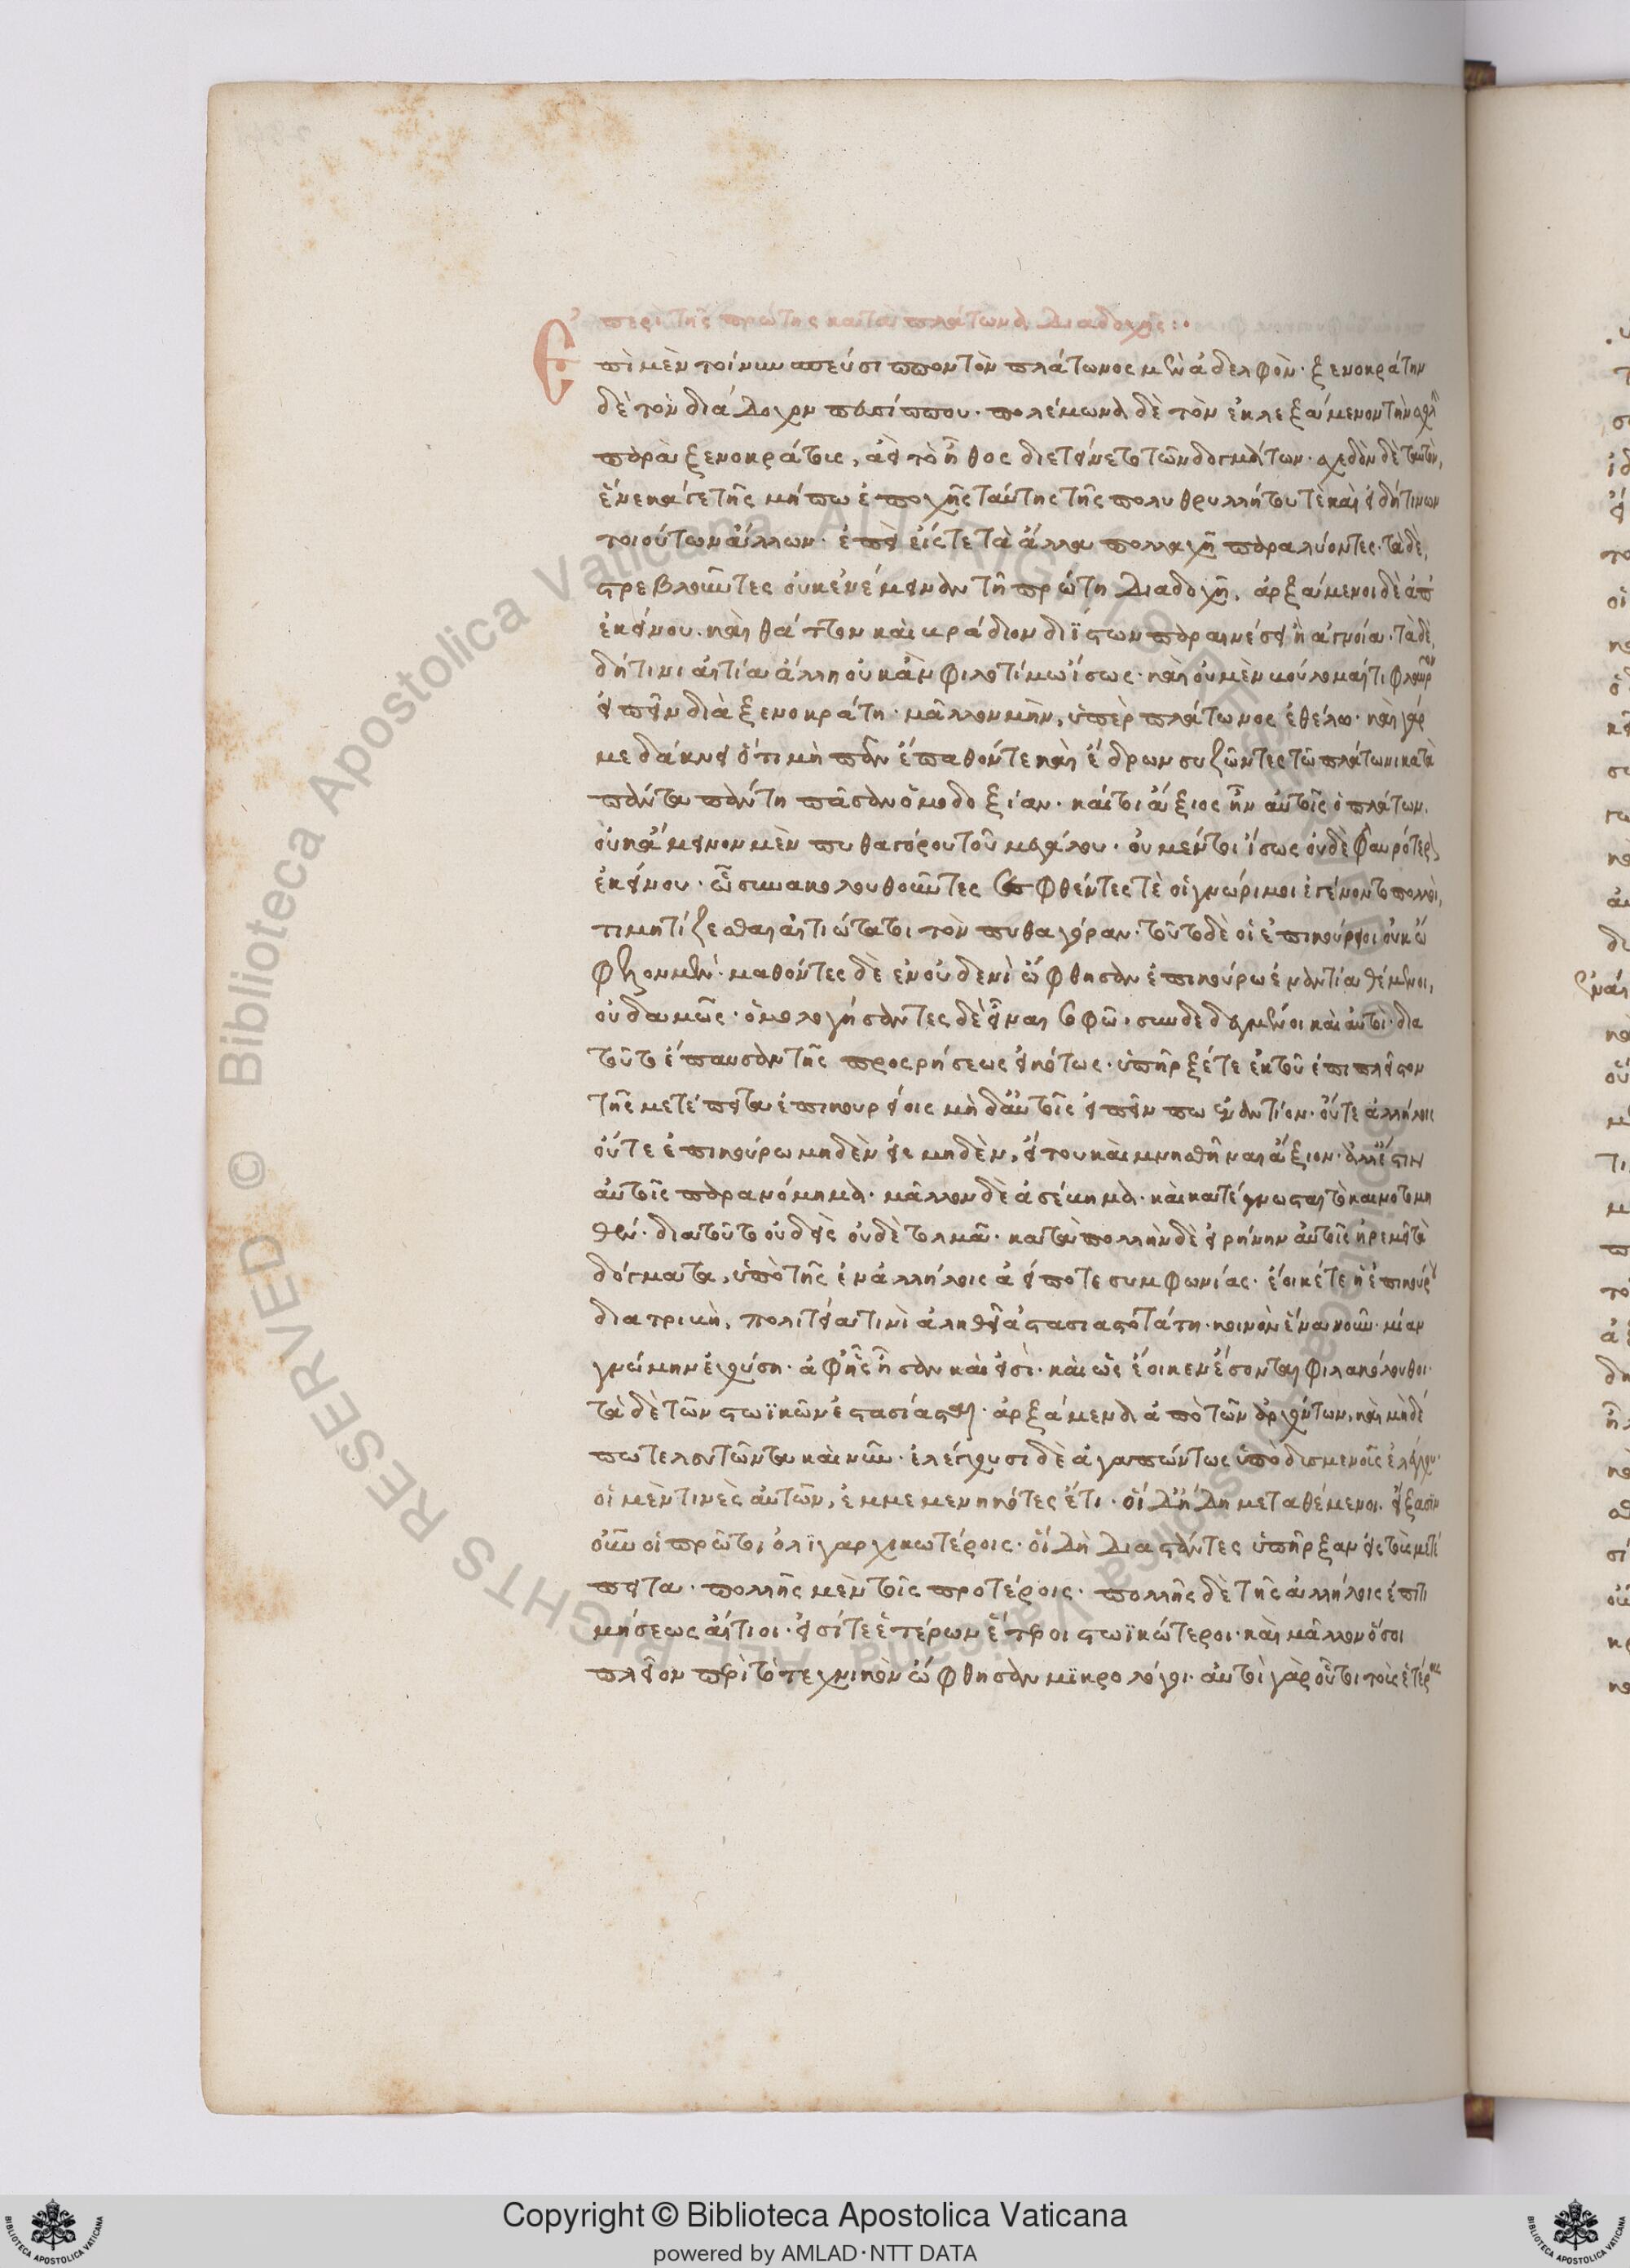 περὶ τῆς πρώτης κατὰ πλάτωνα διαδοχῆς:·
Ἐπὶ μὲν τοίνυν σπεύσιππον τὸν πλάτωνος μὲν ἀδελφὸν· ξενοκράτην
δὲ τὸν διάδοχον πευσίππου· πολέμωνα δὲ τὸν ἐκλεξάμενον τὴν σχολὴν
παρὰ ξενοκράτους, ἀεὶ τὸ ἦθος διετείνετο τῶν δογμάτων· σχεδὸν δὲ ταυτὸν,
ἕνεκά γε τῆς μήπω ἐποχῆς ταύτης τῆς πολυθρυλλήτου τὲ καὶ εἰ δή τινων
τοιούτων ἄλλων· ἐπεὶ εἴς τε τὰ ἄλλα πολλαχῆ παραλύοντες· τὰ δὲ,
στρεβλοῦντες οὐκ ἐνέμειναν τῇ πρώτῃ διαδοχῇ, ἀρξάμενοι δὲ ἀπ
ἐκείνου· καὶ θάττον καὶ βράδιον διΐστων παραινέσει ἢ ἀγνοία· τὰ δὲ,
δή τινι αἰτία ἄλλη οὐκ ἀφιλοτίμω ἴσως· καὶ οὐ μὲν βούλομαί τι φλαῦρον
εἰπεῖν διὰ ξενοκράτη· μᾶλλον μὴν, ὑπὲρ πλάτωνος ἐθέλω· καὶ γάρ
με δάκνει ὅτι μὴ πᾶν ἔπαθόν τε καὶ ἔδρων σωζῶντες τῶ πλάτωνι κατὰ
πάντα πάντη πᾶσαν ὁμοδοξίαν· καίτοι ἄξιος ἦν αὐτοῖς ὁ πλάτων.
οὐκ ἀμείνον μὲν πυθαγόρου τοῦ μεγάλου· οὐ μέντοι ἴσως οὐδὲ φλαυρότερος
ἐκείνου· ᾧ συνακολουθοῦντες σεφθέντες τὲ οἱ γνώριμοι ἐγένοντο πολλοὶ,
τιμητίζεσθαι αἰτιώτατοι τὸν πυθαγόραν· τοῦτο δὲ οἱ ἐπικούρειοι οὐκ ὤ
φελον μὲν· μαθόντες δὲ ἐν οὐδενὶ ὤφθησαν ἐπικούρω ἐναντία θέμενοι,
οὐδαμῶς· ὁμολογήσαντες δὲ εἶναι σοφῶ, συνδεδογμένοι καὶ αὐτοὶ· δια
τοῦτο ἔπαυσαν τῆς προσρήσεως εἰκότως· ὑπῆρξέ τε ἐκ τοῦ ἐπιπλεῖστον
τῆς μετέπειτα ἐπικουρείοις μὴ δαὐτοῖς εἰπεῖν πω ἐναντίον· οὔτε ἀλλήλοις
οὔτε ἐπικούρω μηδὲν εἰς μηδὲν, ὅτου καὶ μνησθῆναι ἄξιον· ἀλλ' ἔστιν
αὐτοῖς παρανόμημα· μᾶλλον δὲ ἀσέβημα· καὶ κατέγνωσται τὸ καινοτομη
θέν· διατοῦτο οὐδεὶς οὐδὲ τολμᾶ· κατὰ πολλὴν δὲ εἰρήνην αὐτοῖς ἠρεμεῖ τὰ
δόγματα, ὑπὸ τῆς ἐν ἀλλήλοις ἀεί ποτε συμφωνίας· ἔοικέ τε ἡ ἐπικούρου
διατριβὴ, πολιτεία τινὶ ἀληθεῖ ἀστασιαστοτάτη· κοινὸν ἕνα νοῦν· μίαν
γνώμην ἐχούση· ἀφ' ἧς ἦσαν καὶ εἰσὶ· καὶ ὡς ἔοικεν ἔσονται φιλακόλουθοι·
τὰ δὲ τῶν στωϊκῶν ἐστασίασται· ἀρξάμενα ἀπὸ τῶν ἀρχόντων, καὶ μηδέ
πω τελουτῶντα καὶ νῦν· ἐλέγχουσι δὲ ἀγαπώντως ὑπὸ δυσμενοῖς ἐλέγχου·
οἱ μὲν τινὲς αὐτῶν, ἐμμεμενηκότες ἔτι· οἱ δ' ἤδη μεταθέμενοι. εἴξασιν
οὖν οἱ πρῶτοι ὀλϊγαρχικωτέροις· οἳ δὴ διαστάντες ὑπῆρξαν εἰς τοὺς μετέ
πειτα· πολλῆς μὲν τοῖς προτέροις· πολλῆς δὲ τῆς ἀλλήλοις ἐπιτι
μήσεως αἴτιοι· εἰσί τε ἑτέρων ἕτεροι στωϊκώτεροι· καὶ μᾶλλον ὅσοι
πλεῖον περὶ τὸ τεχνικὸν ὤφθησαν μϊκρολόγοι· αὐτοὶ γὰρ οὗτοι τοὺς ἑτέρους